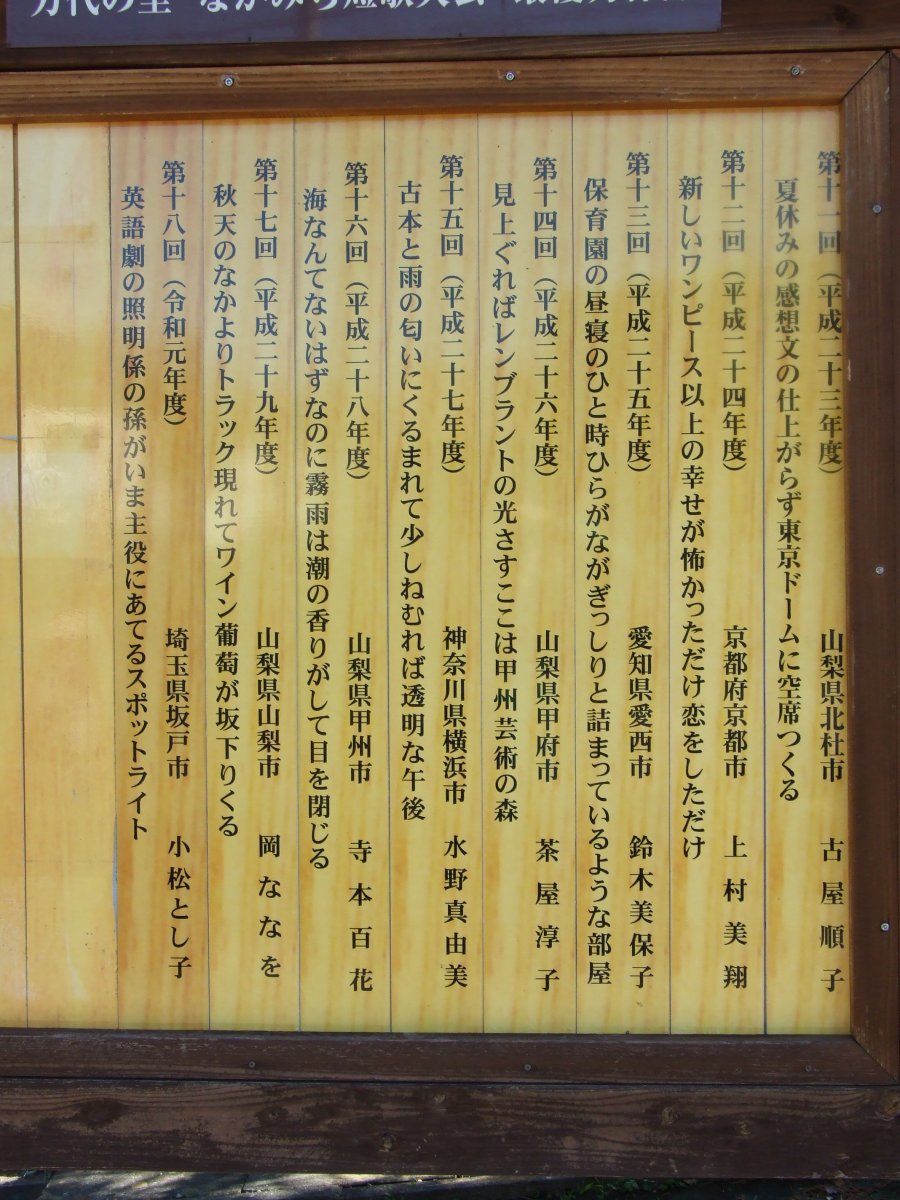 万代の里 なかみち短歌大会
第十一回（平成二十三年度） 山梨県北杜市 古屋順子
夏休みの感想文の仕上がらず東京ドームに空席つくる
第十二回（平成二十四年度） 京都府京都市 上村美翔
新しいワンピース以上の幸せが怖かっただけ恋をしただけ
第十三回（平成二十五年度） 愛知県愛西市 鈴木美保子
保育園の昼寝のひと時ひらがながぎっしりと詰まっているような部屋
第十四回（平成二十六年度） 山梨県甲府市 茶屋淳子
見上ぐればレンブラントの光さすここは甲州芸術の森
第十五回（平成二十七年度） 神奈川県横浜市 水野真由美
古本と雨の匂いにくるまれて少しねむれば透明な午後
第十六回（平成二十八年度） 山梨県甲州市 寺本百花
海なんてないはずなのに霧雨は潮の香りがして目を閉じる
第十七回（平成二十九年度） 山梨県山梨市 岡ななを
秋天のなかよりトラック現れてワイン葡萄が坂下りくる
第十八回（令和元年度） 埼玉県坂戸市 小松とし子
英語劇の照明係の孫がいま主役にあてるスポットライト